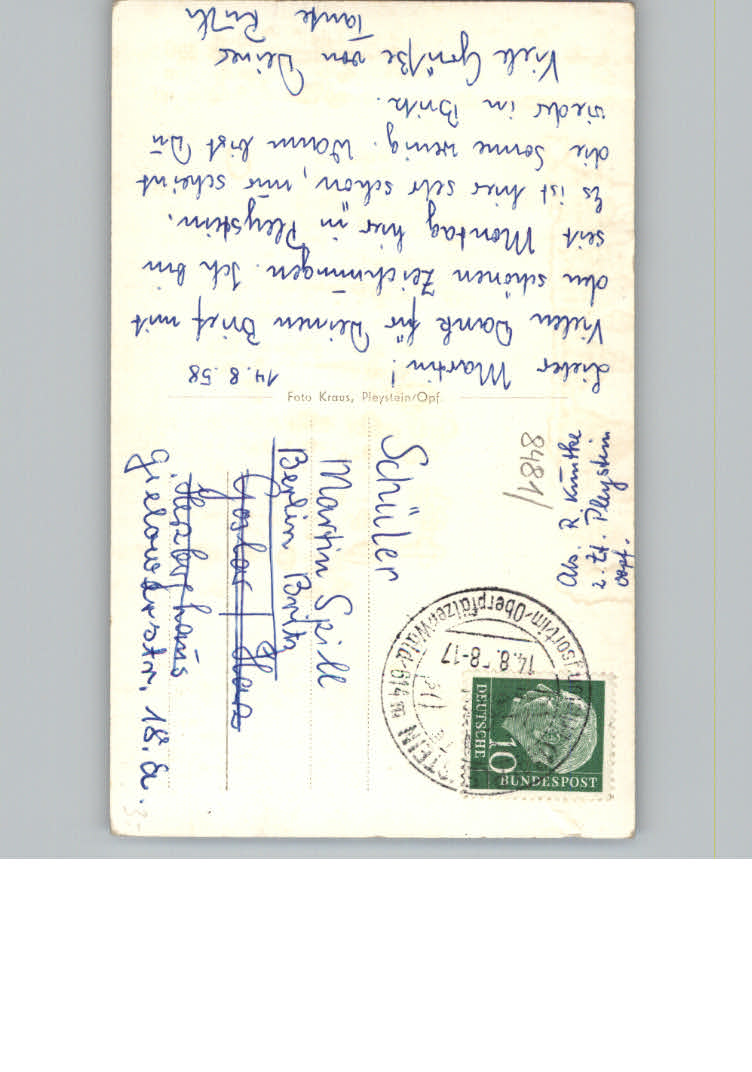 14.8.58
Lieber Martin!
Vielen Dank für Deinen Brief mit
den schönen Zeichnungen. Ich bin
seit Montag hier in Pleystein.
Es ist hier sehr schön, nur scheint
die Sonne wenig. Wann bist Du
wieder in Britz.
Viele Grüße von Deiner
Tante Ruth
Foto Kraus, Pleystein/Opf.
Abs. R.
z. Zt. Pleystein
Oopf.
8481/
Schüler
Martin Spill
Berlin Britz
Goslar / Harz
Gielowerstr. 18.a.
14.8. 8-17
Oberpfälzer Wald 614 m
DEUTSCHE
BUNDESPOST
10